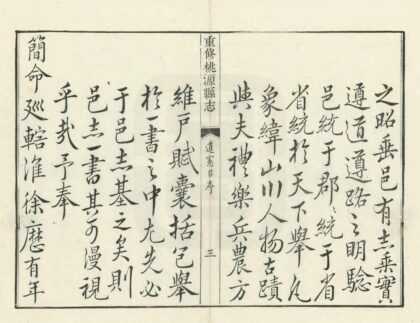 之昭垂邑有志乘實
遵道遵路之明驗
邑統于郡郡統于省
省統於天下舉凡
象緯山川人物古蹟
與夫禮樂兵農方
重修桃源縣志
道憲呂序
三
維戶賦囊括已舉
於一書之中尤先必
于邑志基之矣則
邑志一書其可慢視
乎哉予奉
簡命廵轄淮徐歷有年